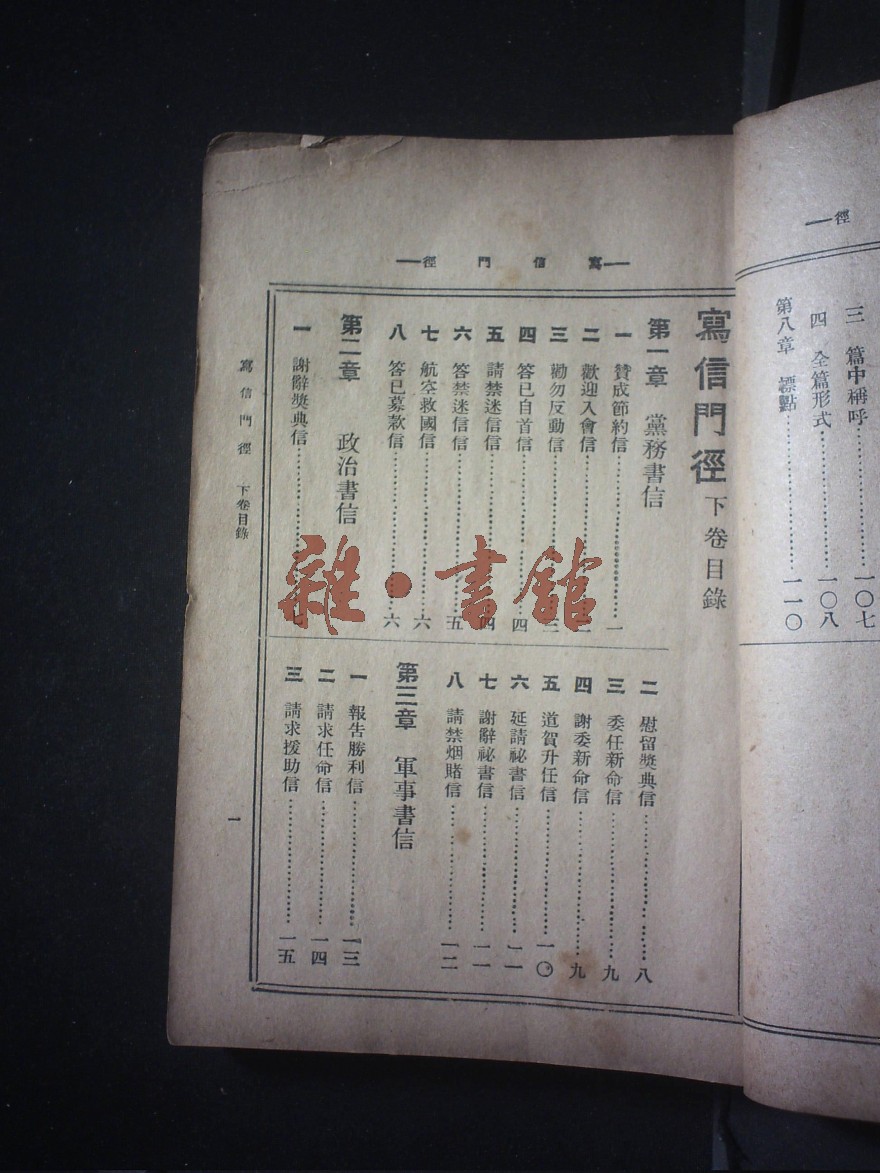 徑
三 篇中稱呼⋯⋯一〇七
四 全篇形式⋯⋯一〇八
第八章 標點⋯⋯一一〇
寫信門徑
寫信門徑 下卷目錄
第一章 黨務書信
一 贊成節約信⋯⋯一
二 歡迎入會信⋯⋯二
三 勸勿反動信⋯⋯三
四 答已自首信⋯⋯四
五 請禁迷信信⋯⋯四
六 答禁迷信信⋯⋯五
七 航空救國信⋯⋯六
八 答已募款信⋯⋯六
第二章 政治書信
一 謝辭獎典信⋯⋯七
二 慰留獎典信⋯⋯八
三 委任新命信⋯⋯九
四 謝委新命信⋯⋯九
五 道賀升任信⋯⋯一〇
六 延請祕書信⋯⋯一一
七 謝辭祕書信⋯⋯一一
八 請禁烟賭信⋯⋯一二
第三章 軍事書信
一 報告勝利信⋯⋯一三
二 請求任命信⋯⋯一四
三 請求援助信⋯⋯一五
寫信門徑 下卷目錄
一
雜·書館